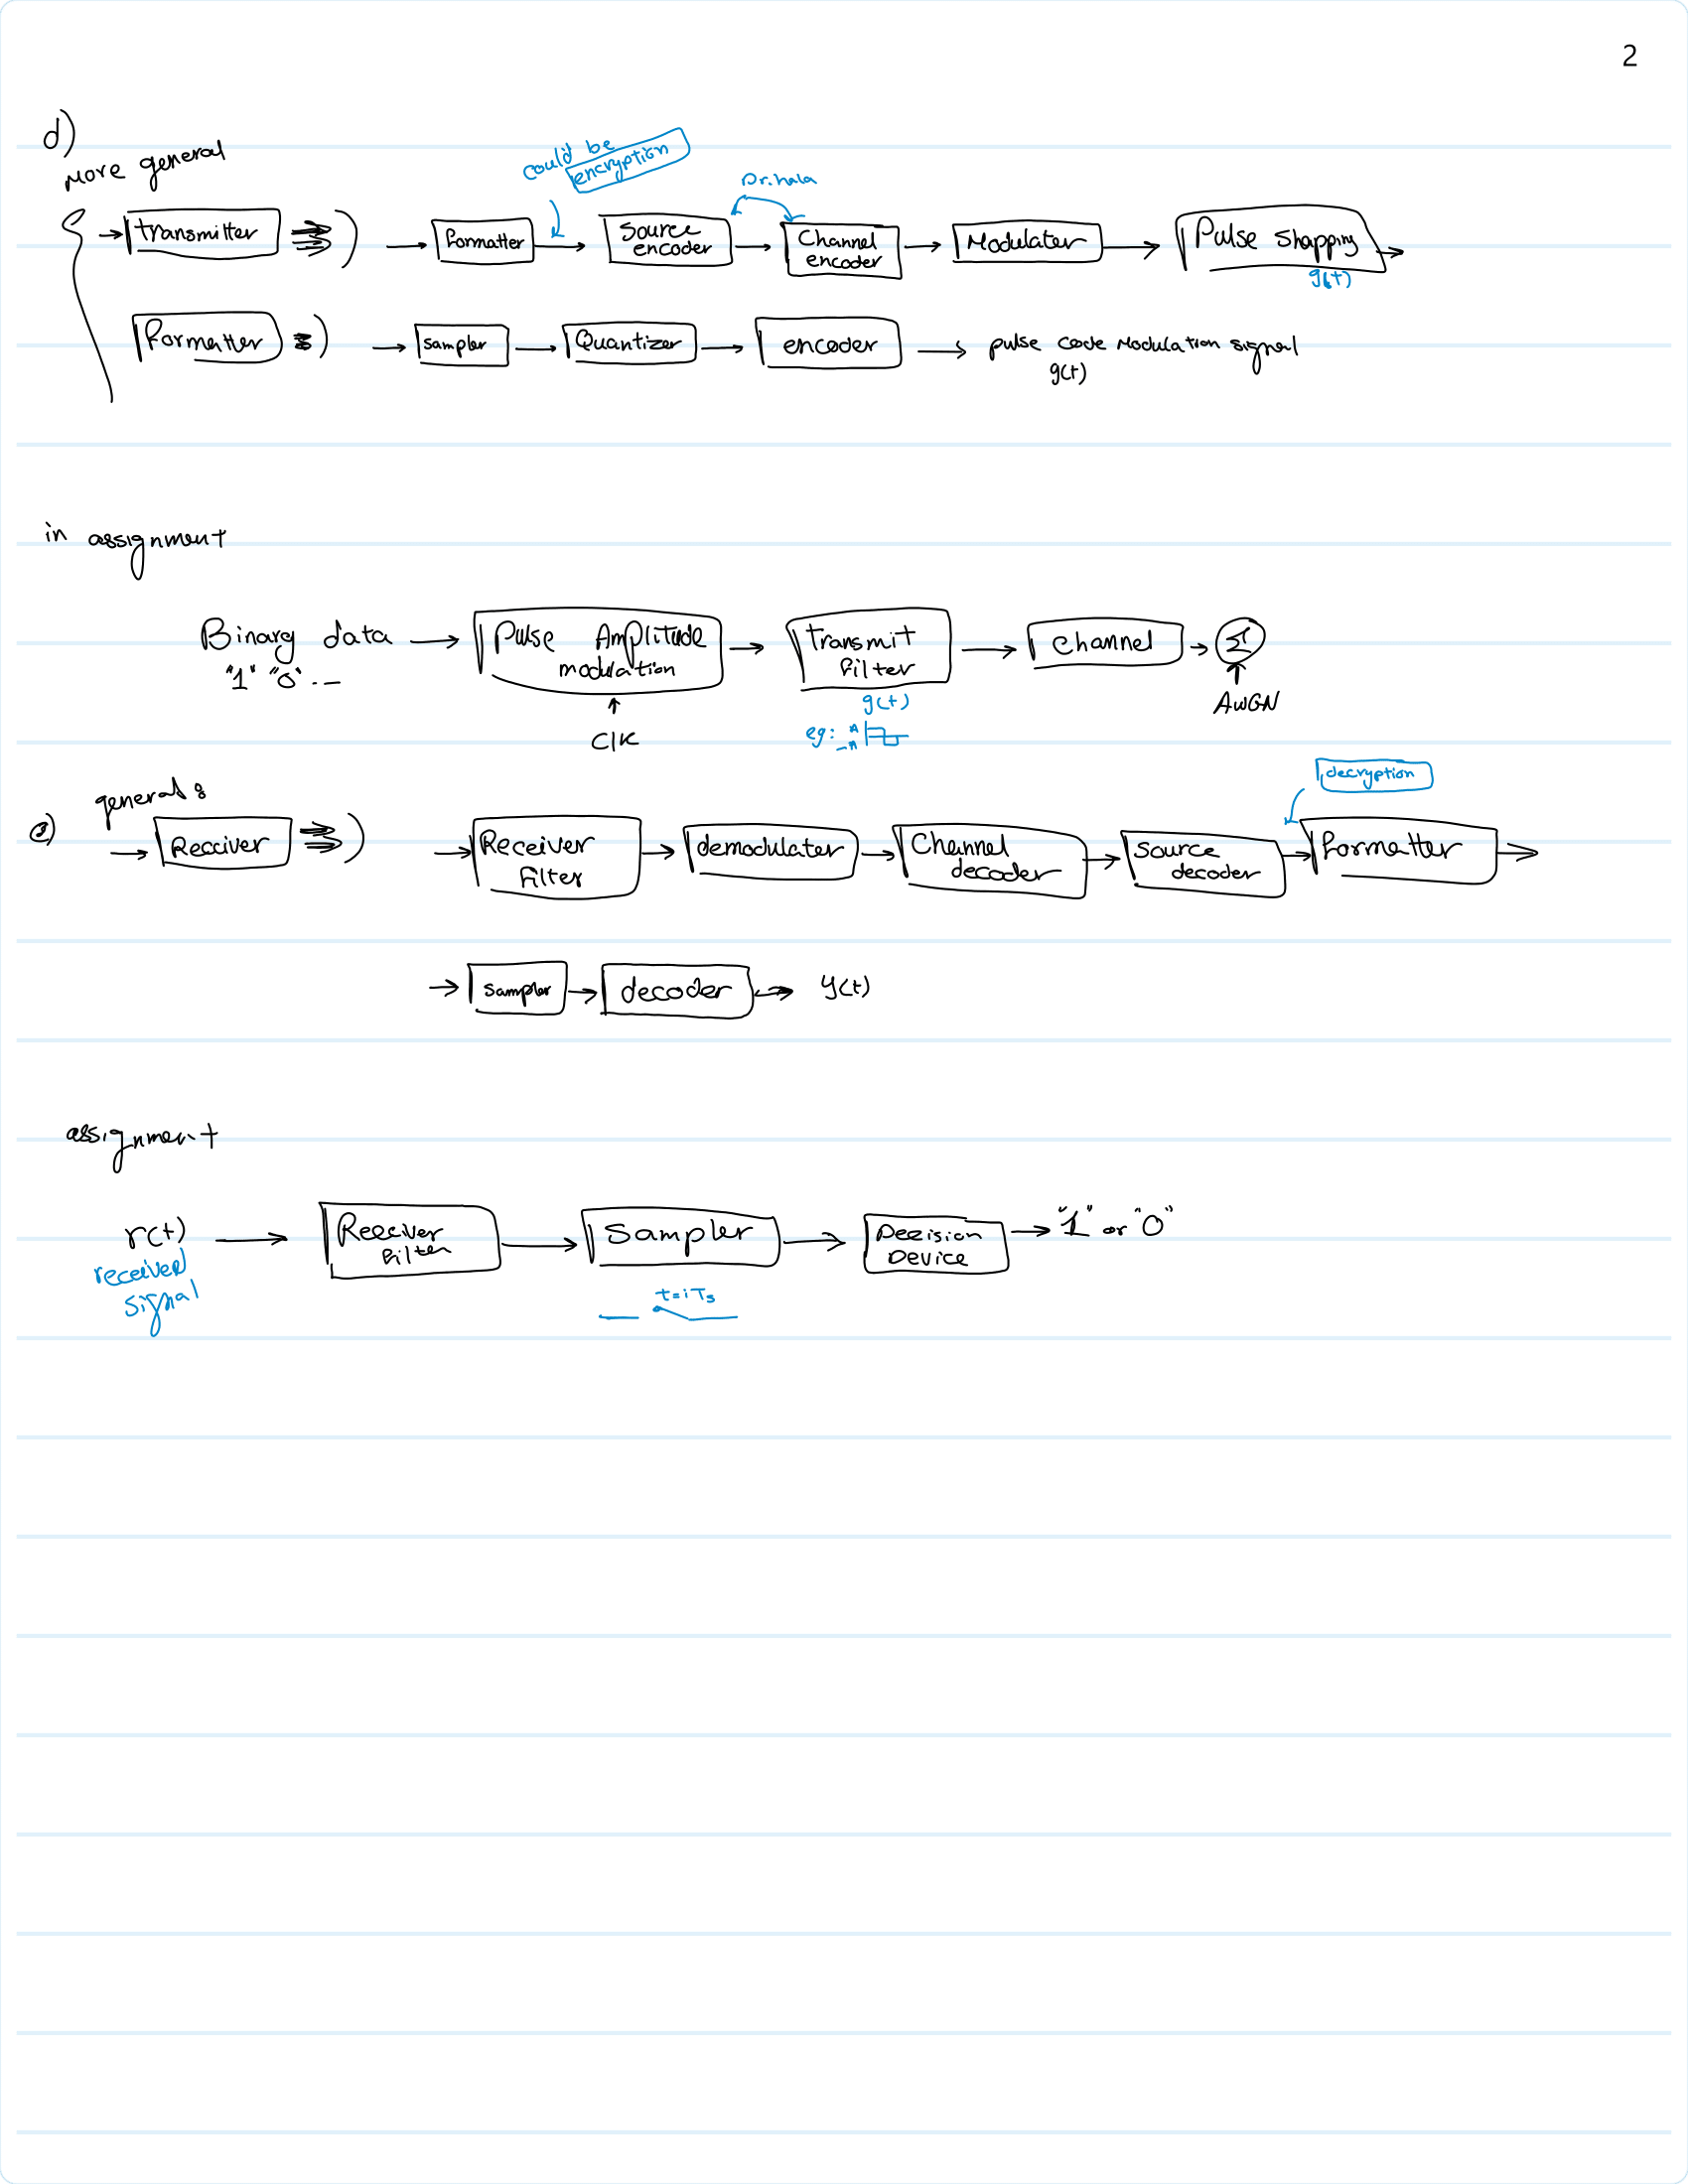 2
d)
More general
could be
encryption
Dr. hala
transmitter
formatter
Source encoder
Channel encoder
Modulater
Pulse Shapping
g(t)
formatter
sampler
Quantizer
encoder
pulse code Modulation signal
g(t)
in assignment
Binary data
"1" "0" ..
Pulse Amplitude modulation
transmit filter
channel
Σ
g(t)
AWGN
Clk
eg: A
-A
decryption
general:
e)
Receiver
Receiver filter
demodulater
Channel decoder
source decoder
formatter
sampler
decoder
y(t)
assignment
r(t)
received signal
Receiver filter
Sampler
Decision Device
"1" or "0"
t=iTs